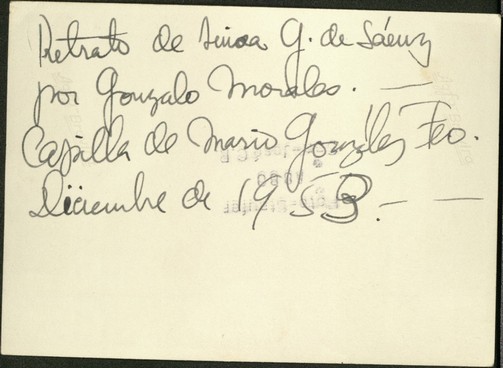 Retrato de G. de Sáenz
por Gonzalo Morales. —
Capilla de Mario González Feo.
Diciembre de 1953. — —